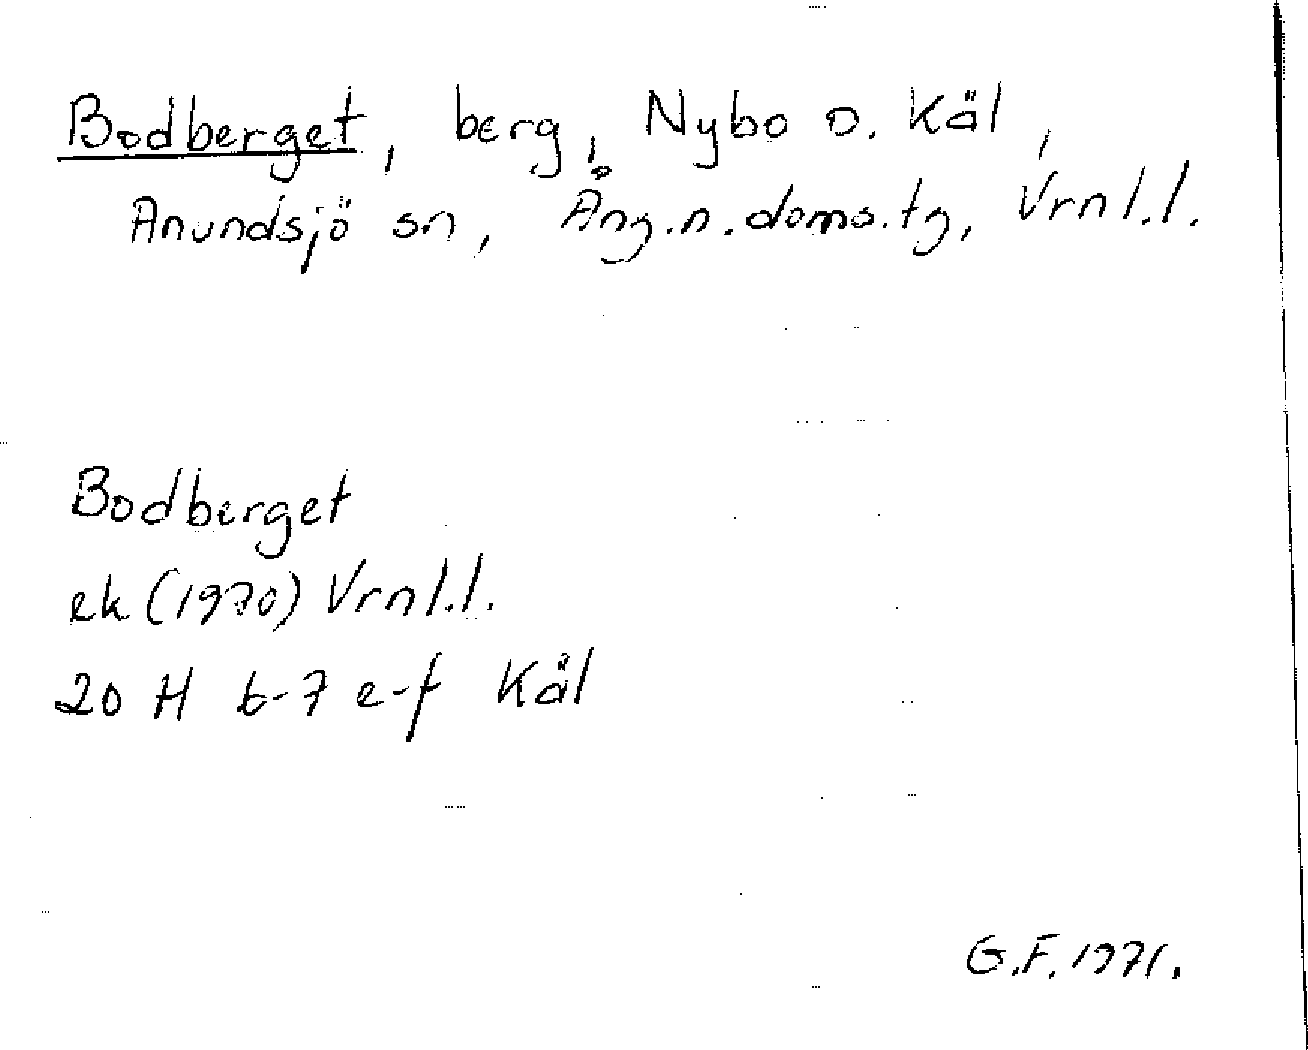 Bodberget, berg, Nybo o. Käl,
Anundsjö sn, Ång.n.doms.tg, Vrnl.l.
Bodberget
ek (1970) Vrnl.l.
20 H 6-7 e-f Käl
G.F. 1971.